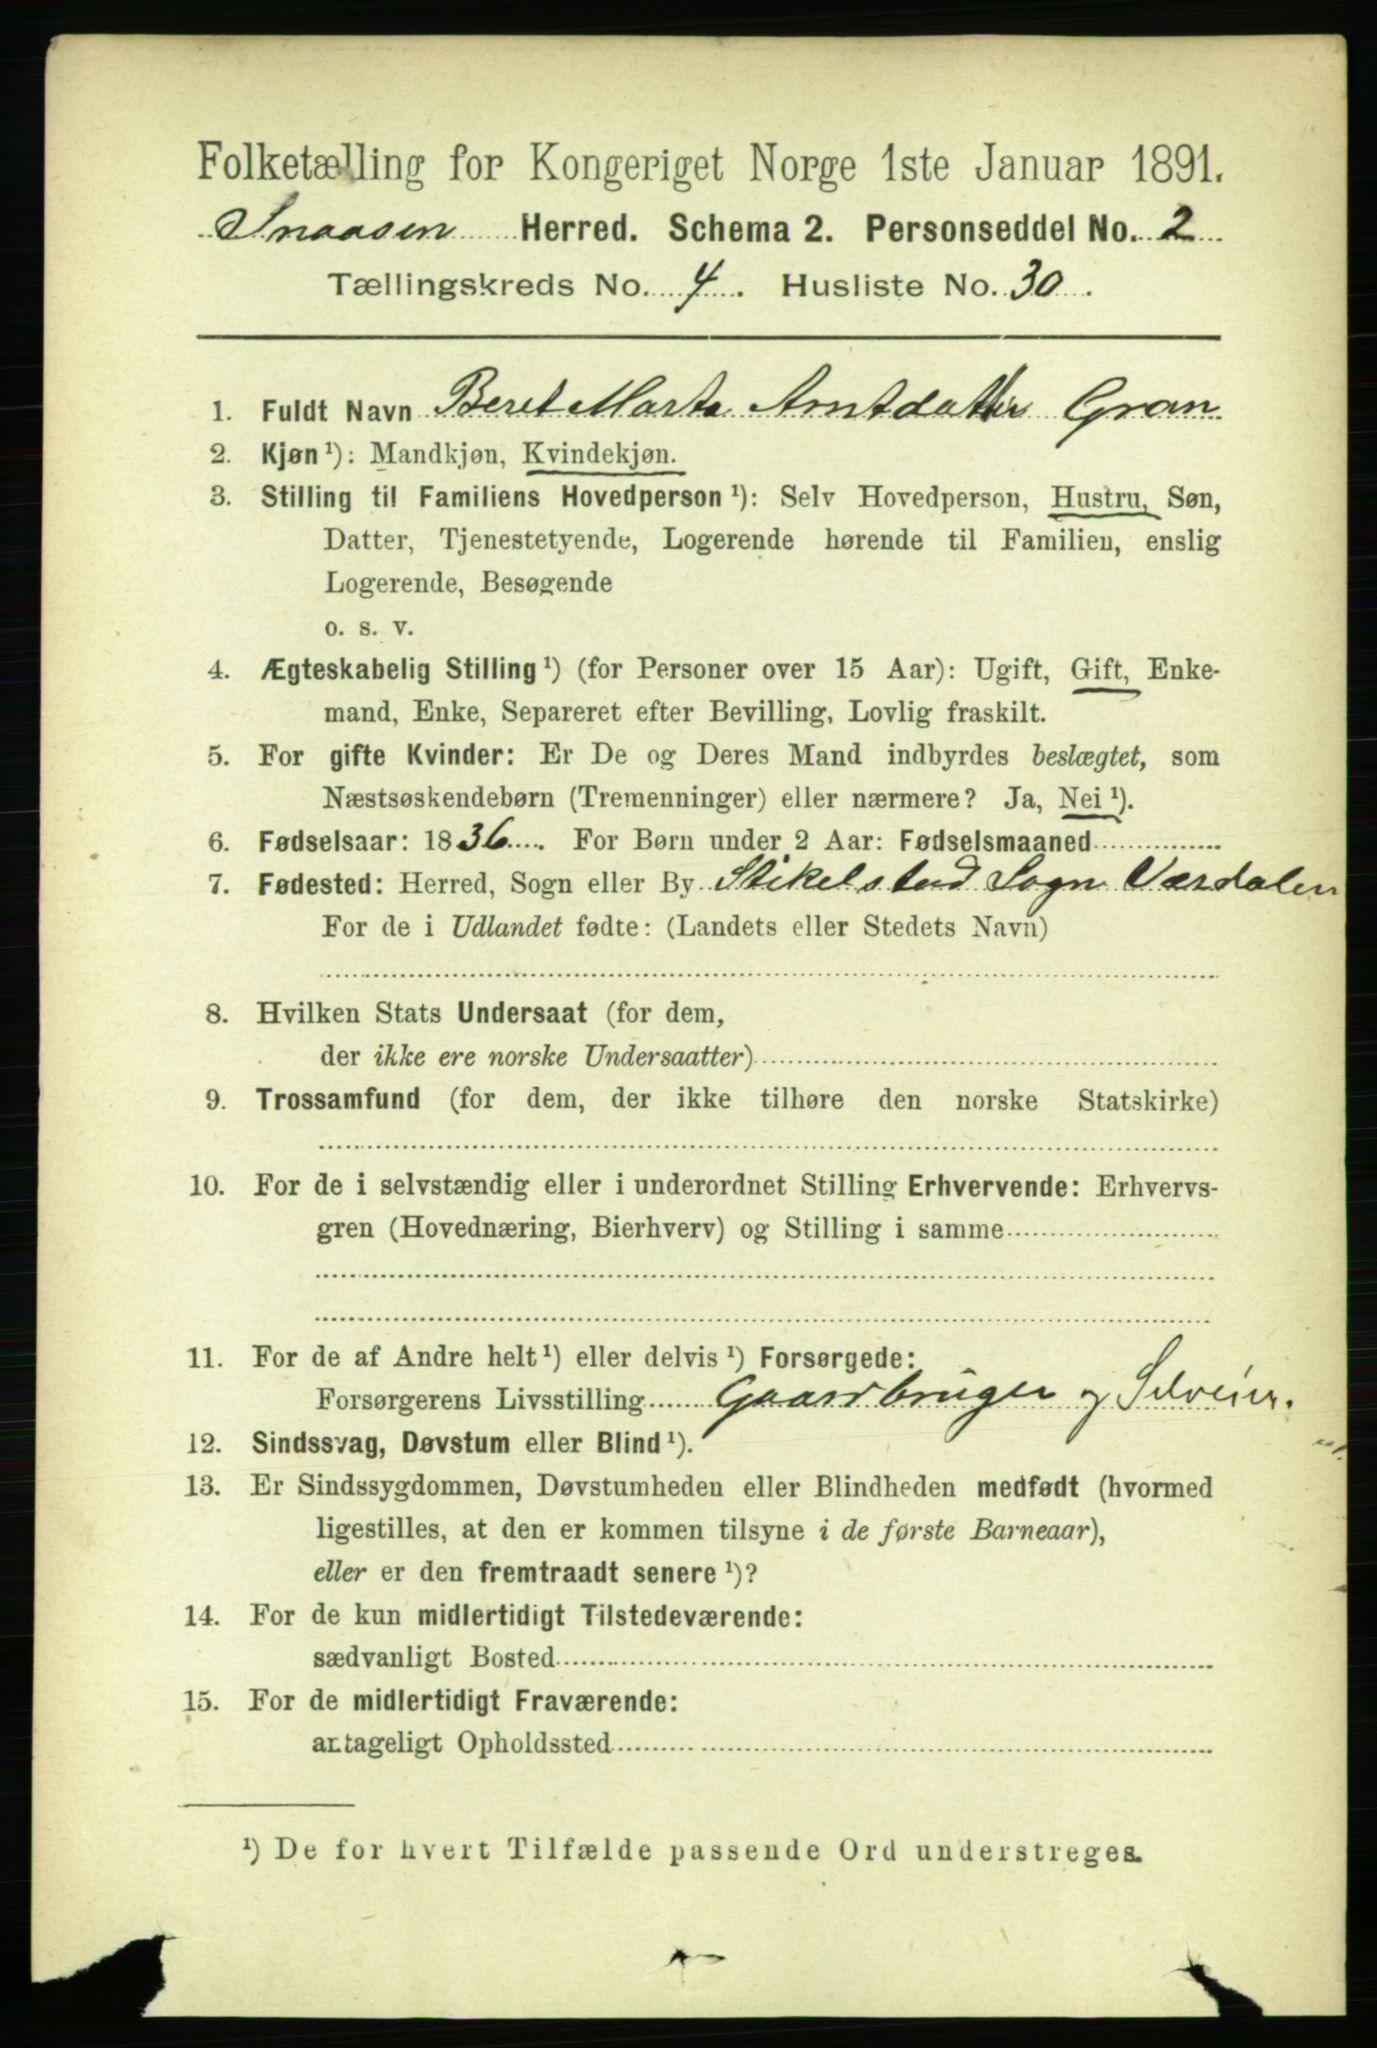 Folketælling for Kongeriget Norge 1ste Januar 1891.
Snaasen Herred. Schema 2. Personseddel No. 2
Tællingskreds No. 4. Husliste No. 30.
1. Fuldt Navn Beret Marta Arntdatter Gran
2. Kjøn ¹): Mandkjøn, Kvindekjøn.
3. Stilling til Familiens Hovedperson ¹): Selv Hovedperson, Hustru, Søn,
Datter, Tjenestetyende, Logerende hørende til Familien, enslig
Logerende, Besøgende
o. s. v.
4. Ægteskabelig Stilling ¹) (for Personer over 15 Aar): Ugift, Gift, Enke-
mand, Enke, Separeret efter Bevilling, Lovlig fraskilt.
5. For gifte Kvinder: Er De og Deres Mand indbyrdes beslægtet, som
Næstsøskendebørn (Tremenninger) eller nærmere? Ja, Nei ¹).
6. Fødselsaar: 1836. For Børn under 2 Aar: Fødselsmaaned
7. Fødested: Herred, Sogn eller By Stikelstad Sogn Værdalen
For de i Udlandet fødte: (Landets eller Stedets Navn)
8. Hvilken Stats Undersaat (for dem,
der ikke ere norske Undersaatter)
9. Trossamfund (for dem, der ikke tilhøre den norske Statskirke)
10. For de i selvstændig eller i underordnet Stilling Erhvervende: Erhvervs-
gren (Hovednæring, Bierhverv) og Stilling i samme
11. For de af Andre helt ¹) eller delvis ¹) Forsørgede:
Forsørgerens Livsstilling Gaardbruger og Selveier.
12. Sindssvag, Døvstum eller Blind ¹).
13. Er Sindssygdommen, Døvstumheden eller Blindheden medfødt (hvormed
ligestilles, at den er kommen tilsyne i de første Barneaar),
eller er den fremtraadt senere ¹)?
14. For de kun midlertidigt Tilstedeværende:
sædvanligt Bosted
15. For de midlertidigt Fraværende:
antageligt Opholdssted
¹) De for hvert Tilfælde passende Ord understreges.